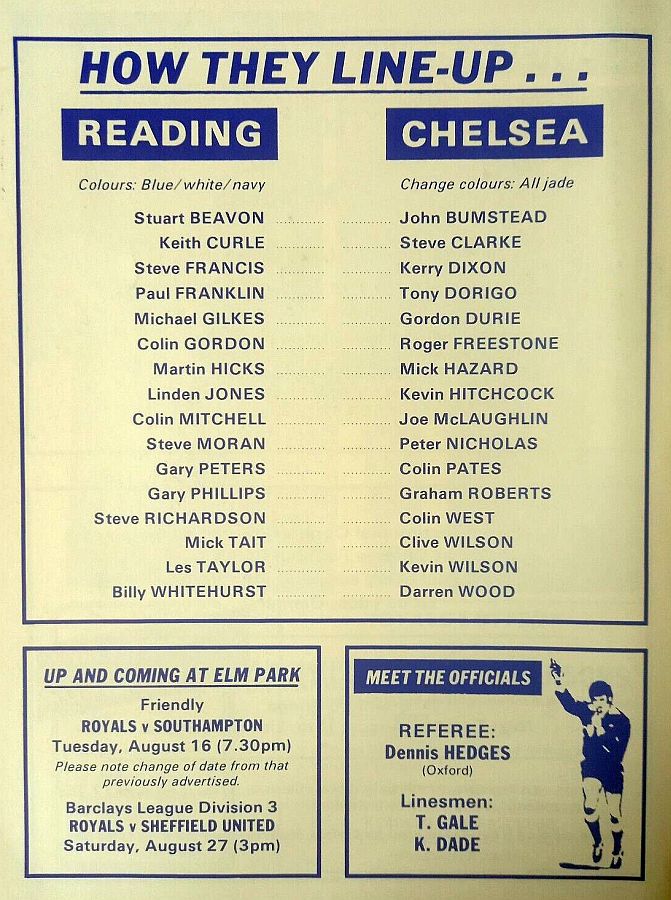 HOW THEY LINE-UP . . .
READING
Colours: Blue/white/navy
Stuart BEAVON
Keith CURLE
Steve FRANCIS
Paul FRANKLIN
Michael GILKES
Colin GORDON
Martin HICKS
Linden JONES
Colin MITCHELL
Steve MORAN
Gary PETERS
Gary PHILLIPS
Steve RICHARDSON
Mick TAIT
Les TAYLOR
Billy WHITEHURST
CHELSEA
Change colours: All jade
John BUMSTEAD
Steve CLARKE
Kerry DIXON
Tony DORIGO
Gordon DURIE
Roger FREESTONE
Mick HAZARD
Kevin HITCHCOCK
Joe McLAUGHLIN
Peter NICHOLAS
Colin PATES
Graham ROBERTS
Colin WEST
Clive WILSON
Kevin WILSON
Darren WOOD
UP AND COMING AT ELM PARK
Friendly
ROYALS v SOUTHAMPTON
Tuesday, August 16 (7.30pm)
Please note change of date from that
previously advertised.
Barclays League Division 3
ROYALS v SHEFFIELD UNITED
Saturday, August 27 (3pm)
MEET THE OFFICIALS
REFEREE:
Dennis HEDGES
(Oxford)
Linesmen:
T. GALE
K. DADE